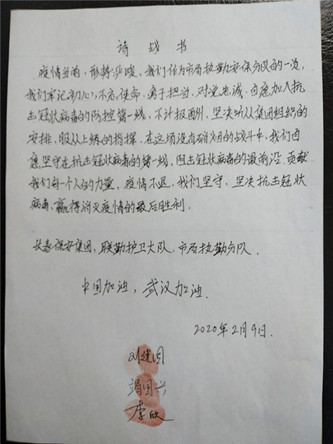 请战书
疫情当前，形势严峻，我们作为市局执勤安保分队的一员，
我们牢记初心，不辱使命，勇于担当，对党忠诚，自愿加入抗
击冠状病毒的防控第一线，不计报酬，坚决听从集团组织的
安排，服从上级的指挥，在这场没有硝烟的战斗中，我们自
愿坚守在抗击冠状病毒的第一线，阻击冠状病毒的最前沿，贡献
我们每个人的力量，疫情不退，我们坚守，坚决抗击冠状
病毒，赢得消灭疫情的最后胜利。
保安集团，联勤护卫大队，市局执勤分队。
中国加油，武汉加油.
2020年2月9日.
刘建国
国兴
李欣